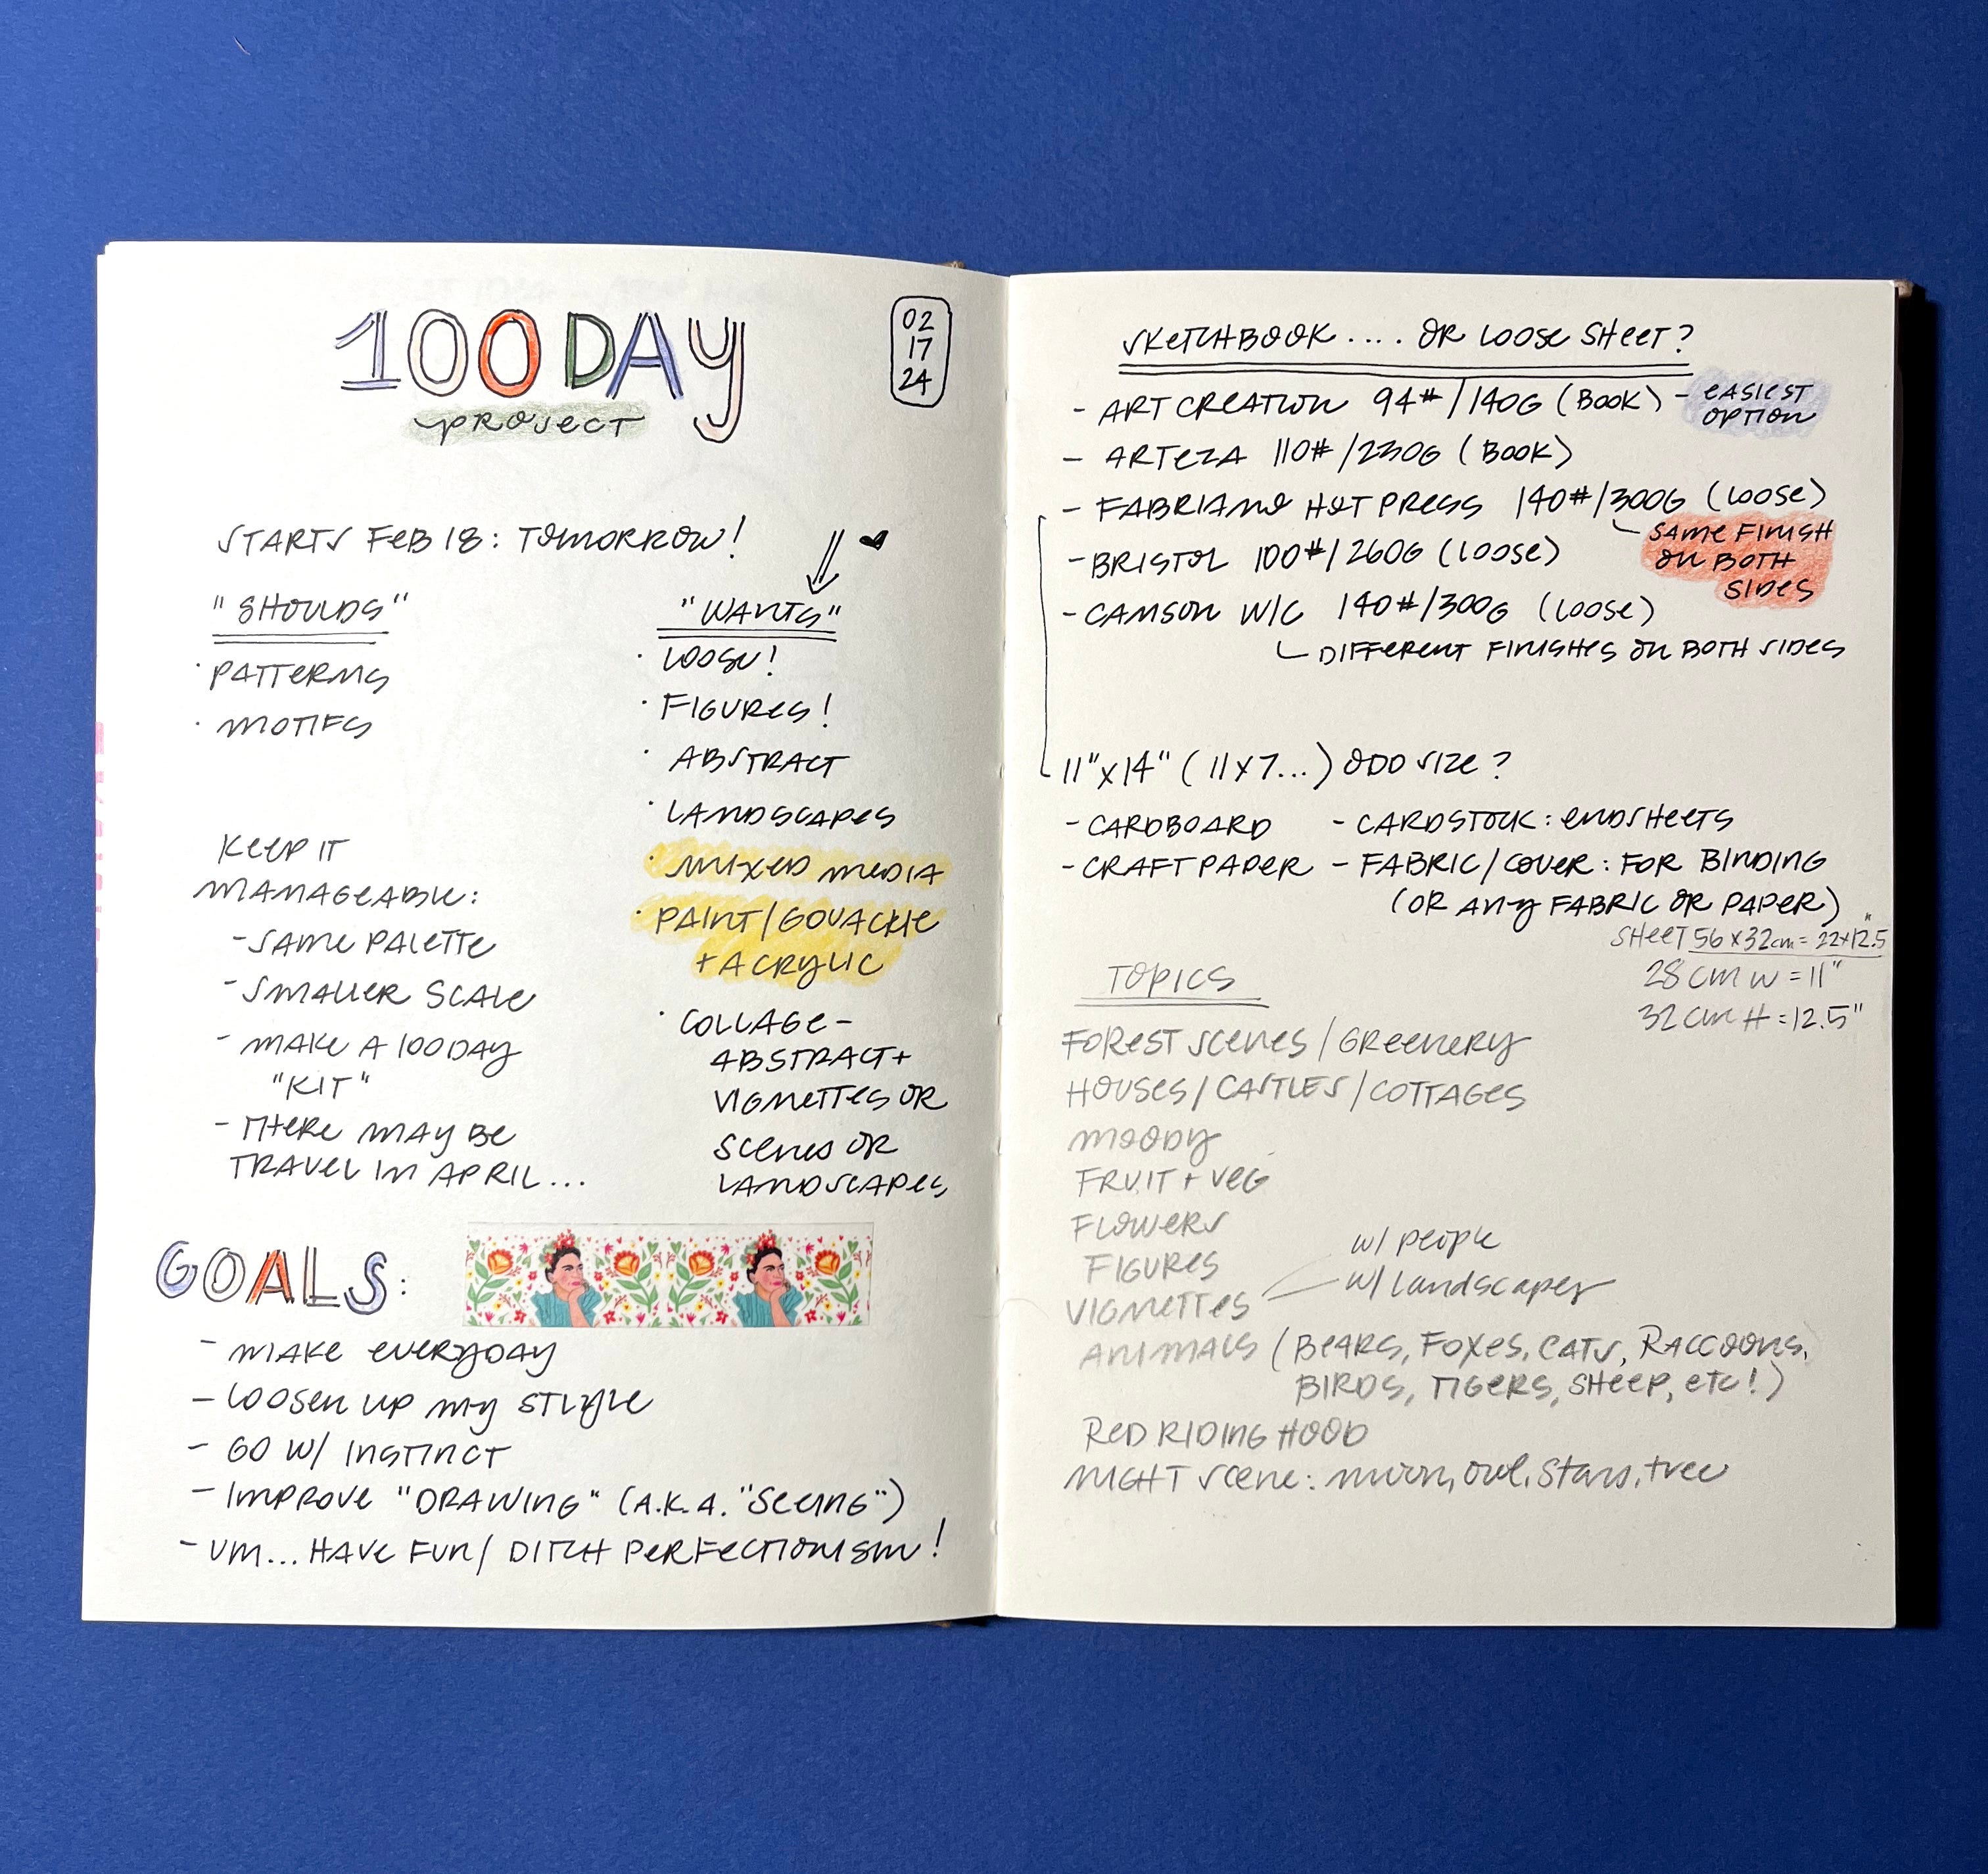 100 DAY
PROJECT
02
17
24
STARTS FEB 18: TOMORROW!
"SHOULDS"
· PATTERNS
· MOTIFS
"WANTS"
· LOOSE!
· FIGURES!
· ABSTRACT
· LANDSCAPES
· MIXED MEDIA
· PAINT/GOUACHE
+ ACRYLIC
· COLLAGE-
ABSTRACT+
VIGNETTES OR
SCENES OR
LANDSCAPES
KEEP IT
MANAGEABLE:
- SAME PALETTE
- SMALLER SCALE
- MAKE A 100 DAY
"KIT"
- THERE MAY BE
TRAVEL IN APRIL...
GOALS:
- MAKE EVERYDAY
- LOOSEN UP MY STYLE
- GO W/ INSTINCT
- IMPROVE "DRAWING" (A.K.A. "SEEING")
- UM... HAVE FUN/ DITCH PERFECTIONISM!
SKETCHBOOK .... OR LOOSE SHEET?
- ART CREATION 94#/140G (BOOK) - EASIEST
OPTION
- ARTEZA 110#/230G (BOOK)
- FABRIANO HOT PRESS 140#/300G (LOOSE)
SAME FINISH
ON BOTH
SIDES
- BRISTOL 100#/260G (LOOSE)
- CANSON W/C 140#/300G (LOOSE)
DIFFERENT FINISHES ON BOTH SIDES
11"X14" (11X7...) ODD SIZE?
- CARDBOARD - CARDSTOCK: ENDSHEETS
- CRAFT PAPER - FABRIC/COVER: FOR BINDING
(OR ANY FABRIC OR PAPER)
SHEET 56X32cm = 22X12.5"
28 CM W = 11"
32 CM H = 12.5"
TOPICS
FOREST SCENES / GREENERY
HOUSES / CASTLES / COTTAGES
MOODY
FRUIT + VEG
FLOWERS
FIGURES
VIGNETTES
W/ PEOPLE
W/ LANDSCAPES
ANIMALS (BEARS, FOXES, CATS, RACCOONS,
BIRDS, TIGERS, SHEEP, ETC!)
RED RIDING HOOD
NIGHT SCENE: MOON, OWL, STARS, TREE